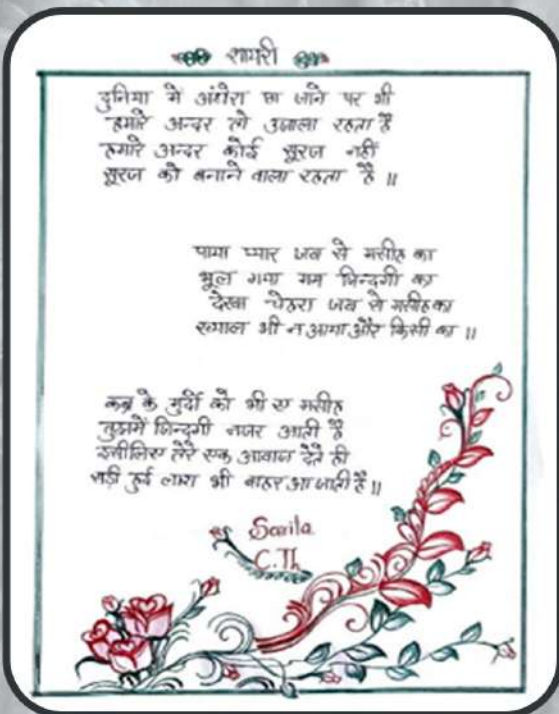 शायरी
दुनिया में अंधेरा छा जाने पर भी
हमारे अन्दर तो उजाला रहता है
हमारे अन्दर कोई सूरज नहीं
सूरज को बनाने वाला रहता है ॥
पाया प्यार जब से मसीह का
भूल गया गम जिन्दगी का
देखा चेहरा जब से मसीह का
ख्याल भी न आया और किसी का ॥
कब्र के मुर्दों को भी ए मसीह
तुझमें जिन्दगी नजर आती है
इसीलिए तेरे एक आवाज देते ही
सड़ी हुई लाश भी बाहर आ जाती है ॥
Sarila
C.Th